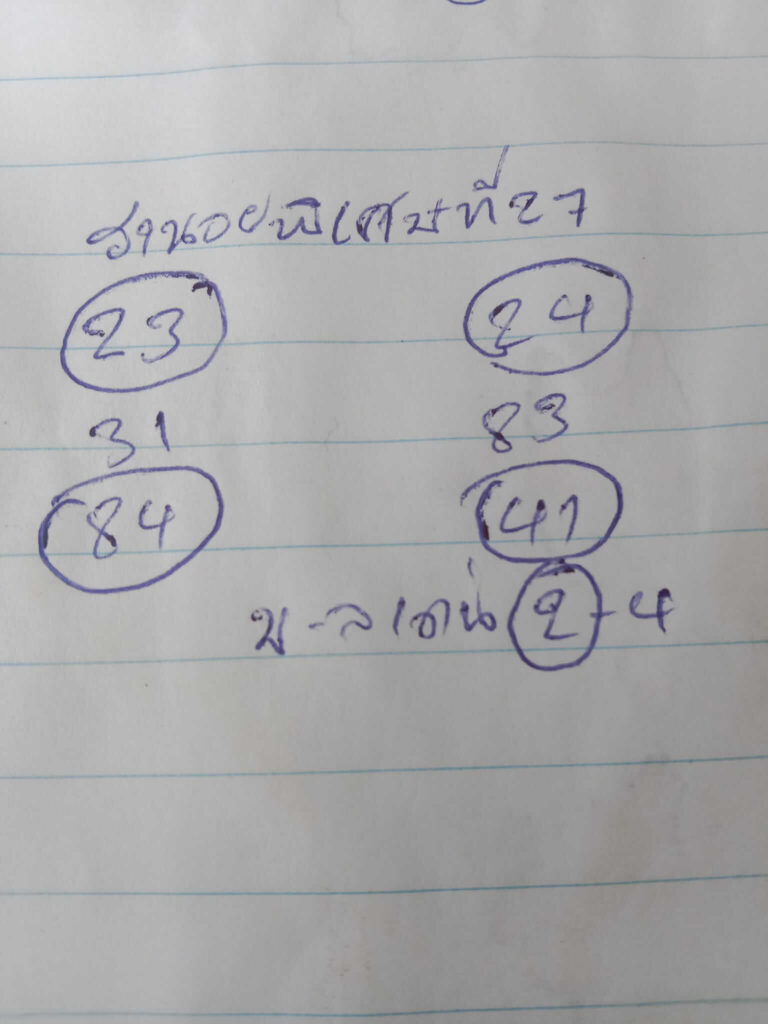 ฮานอยพิเศษที่27
23 24
31 83
84 41
บ-ล เด่น 2-4